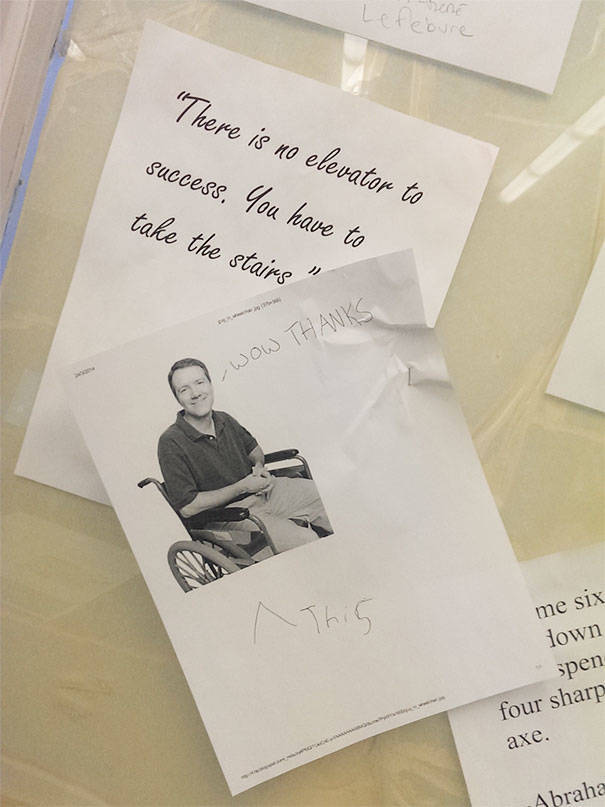 Lefebure
"There is no elevator to
success. You have to
take the stairs."
WOW THANKS
^ This
me six
down
spen
four sharp
axe.
Abraha